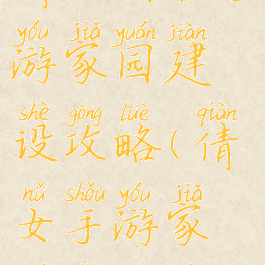 yóu jiā yuán jiàn
游家园建
shè gōng lüè qiàn
设攻略(倩
nǚ shǒu yóu jiā
女手游家